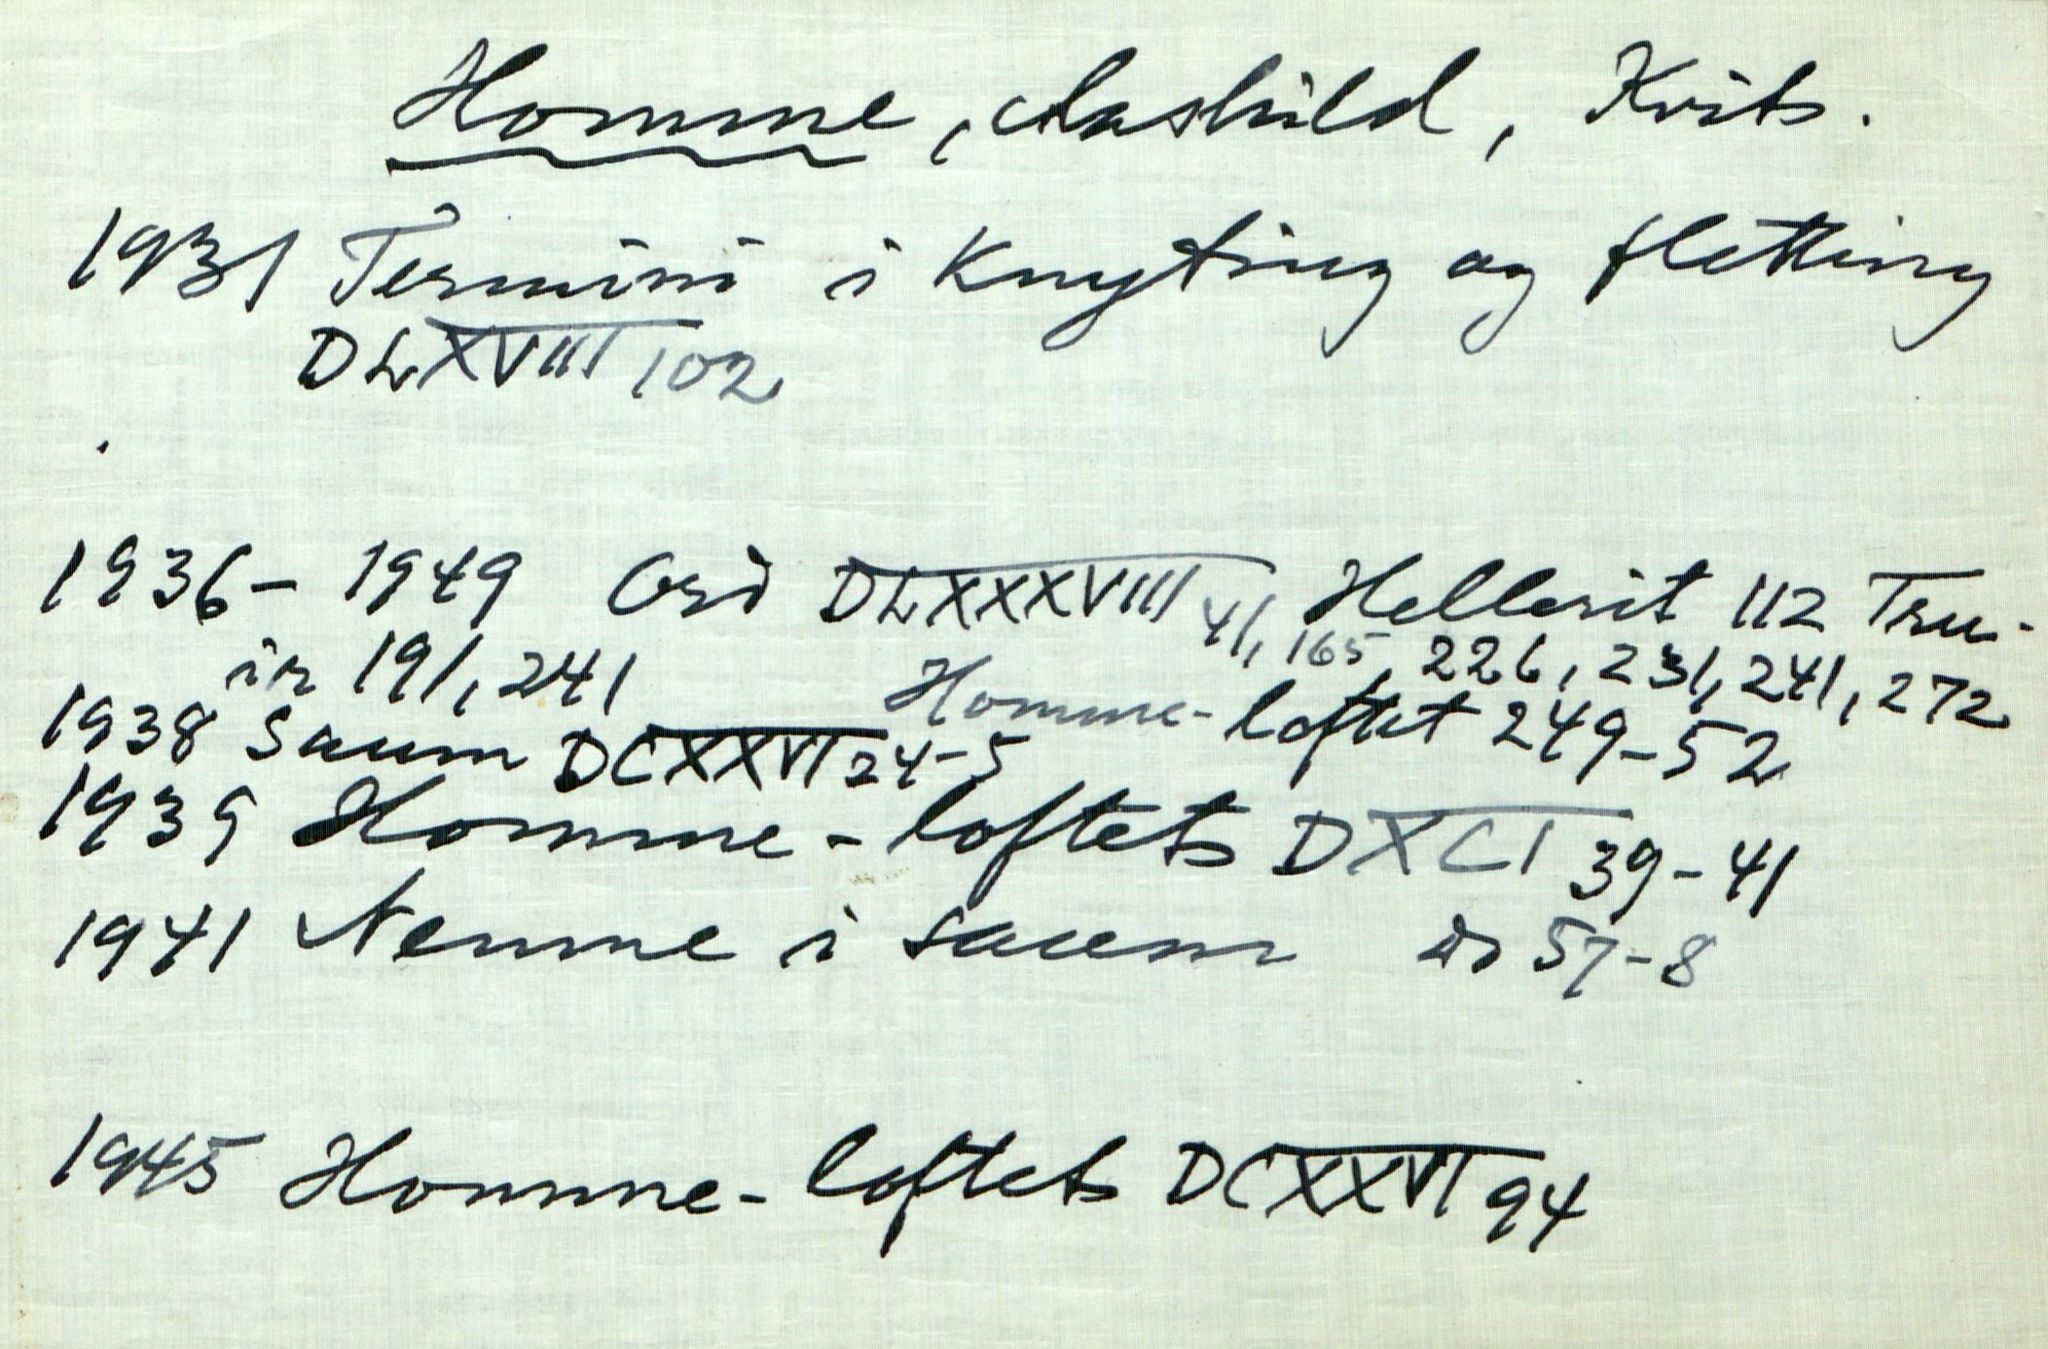 Homme, Aashild, Kvits.
1931 Termini i Knyting og fletting
DLXVIII 102
1936- 1949 Ord DLXXXVIII 41, 165, 226, 231, 241, 272
Hellerit 112 Tru-
in 191, 241
Homme-loftet 249-52
1938 Saum DCXXVI 24-5
1939 Homme-loftets DXCI 39-41
1941 Nemne i saum do 57-8
1945 Homme-loftets DCXXVI 94